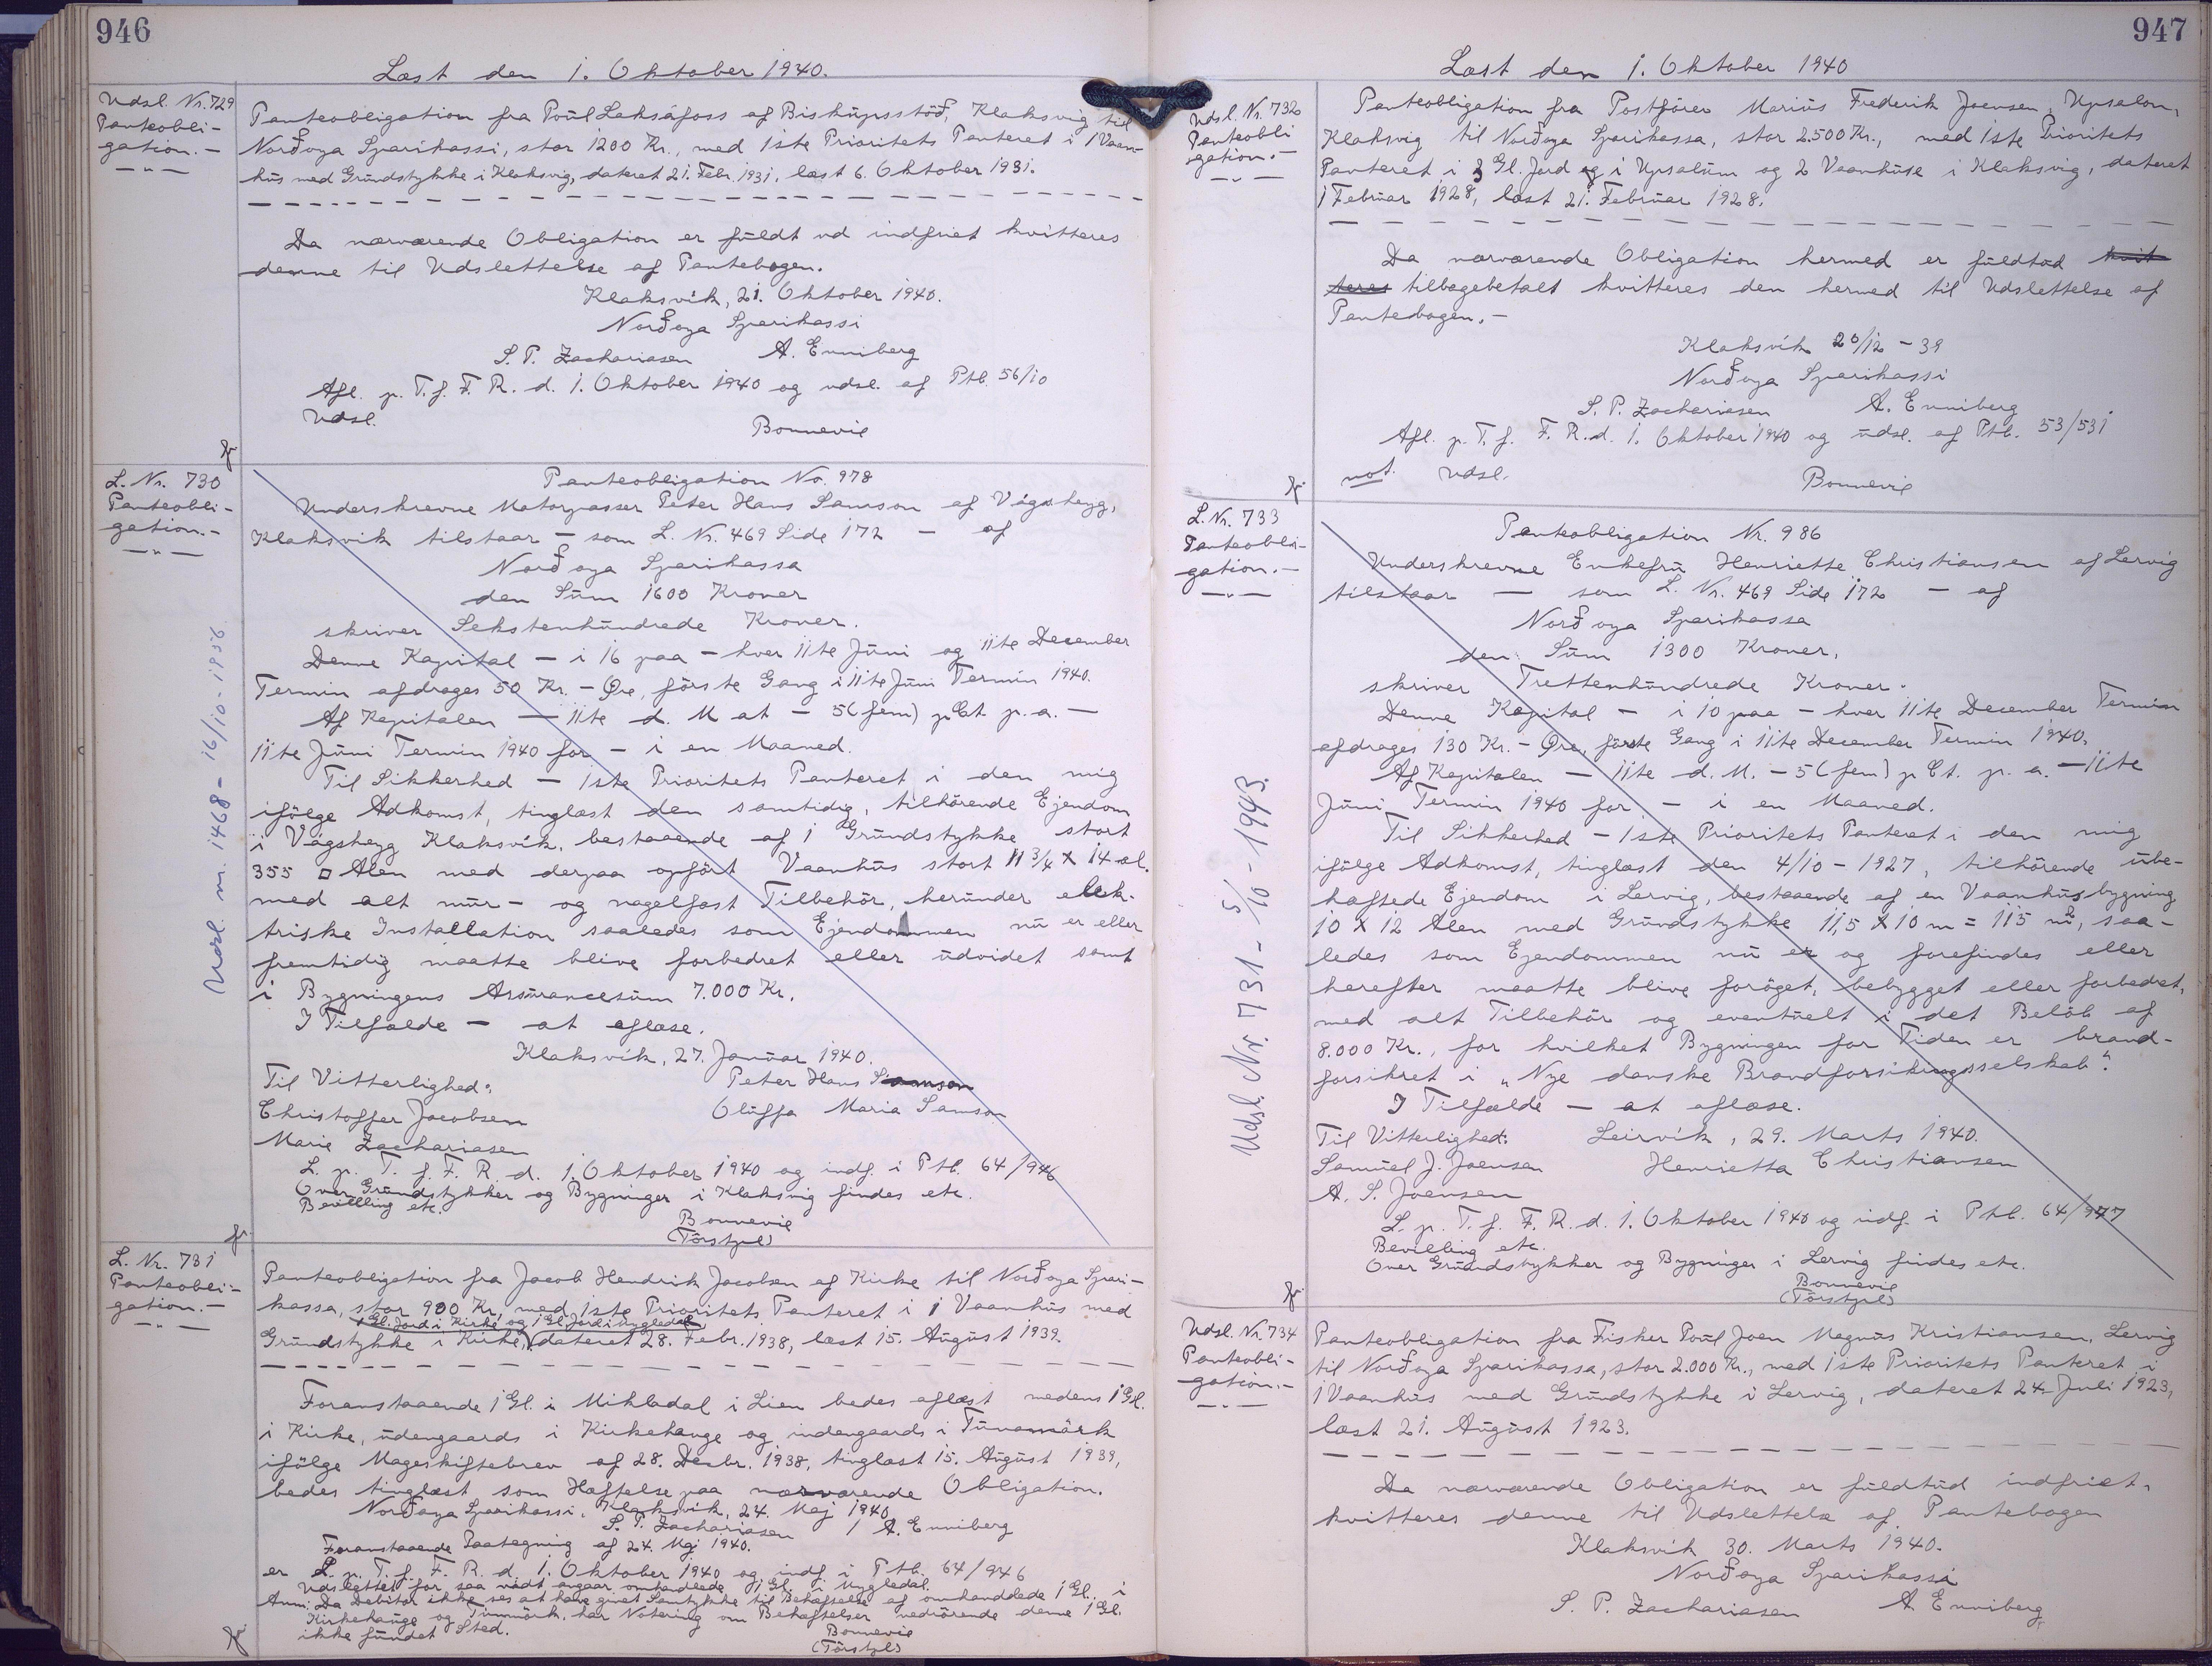 946
Læst den 1. Oktober 1940.
Udsl. Nr. 729
Panteobli-
gation.-
Panteobligation fra Poul Laksáfoss af Biskupsstöð, Klaksvig til
Norðoya Sparikassi, stor 1200 Kr., med 1ste Prioritets Panteret i 1 Vaan-
hus med Grundstykke i Klaksvig, dateret 21. Febr. 1931. læst 6. Oktober 1931.
Da nærværende Obligation er fuldt ud indfriet kvitteres
denne til Udslettelse af Pantebogen.
Klaksvík, 21. Oktober 1940.
Norðoya Sparikassi
S. P. Zachariasen A. Enniberg
Afl. p. T. f. F. R. d. 1. Oktober 1940 og udsl. af Ptb. 56/10
Udsl.
Bonnevie
L. Nr. 730
Panteobli-
gation.-
Panteobligation No. 978
Underskrevne Motorpasser Peter Hans Samson af Vágsheyg,
Klaksvík tilstaar - som L. Nr. 469 Side 172 - af
Norðoya Sparikassa
den Sum 1600 Kroner
skriver Sekstenhundrede Kroner.
Denne Kapital - i 16 paa - hver 11te Juni og 11te December
Termin afdrages 50 Kr. - Øre, förste Gang i 11te Juni Termin 1940.
Af Kapitalen - 11te d. M at - 5 (fem) p Ct. p. a. -
11te Juni Termin 1940 for - i en Maaned.
Til Sikkerhed - 1ste Prioritets Panteret i den mig
ifölge Adkomst, tinglæst den samtidig, tilhörende Ejendom
i Vágsheyg Klaksvík, bestaaende af 1 Grundstykke stort
355 □ Alen med derpaa opfört Vaanhus stort 11 3/4 X 14 al.
med alt mur- og nagelfast Tilbehör, herunder elek-
triske Installation saaledes som Ejendommen nu er eller
fremtidig maatte blive forbedret eller udvidet samt
i Bygningens Assurancesum 7.000 Kr.
I Tilfælde - at aflæse.
Klaksvík, 27. Januar 1940.
Til Vitterlighed: Peter Hans Samson
Christoffer Jacobsen Oluffa Maria Samson
Marie Zachariasen
L. p. T. f. F. R. d. 1. Oktober 1940 og indf. i Ptb. 64/946
Over Grundstykker og Bygninger i Klaksvig findes etc.
Bevilling etc.
Bonnevie
(Tórstpl)
Udsl. nr. 1468 - 16/10 - 1956.
L. Nr. 731
Panteobli-
gation.-
Panteobligation fra Jacob Hendrik Jacobsen af Kirke til Norðoya Spari-
kassa, stor 900 Kr., med 1ste Prioritets Panteret i 1 Vaanhus med
1 Gl. Jord i Kirke og 1 Gl. Jord i Uygledal
Grundstykke i Kirke, dateret 28. Febr. 1938, læst 15. August 1939.
Foranstaaende 1 Gl. i Mikladal i Lien bedes aflæst medens 1 Gl.
i Kirke, udengaards i Kirkehauge og indengaards i Túnamörk
ifölge Mageskiftebrev af 28. Decbr. 1938, tinglæst 15. August 1939,
bedes tinglæst som Hæftelse paa nærværende Obligation.
Norðoya Sparikassi, Klaksvík, 24. Maj 1940
S. P. Zachariasen / A. Enniberg
Foranstaaende Paategning af 24. Maj 1940.
er L. p. T. f. F. R. d. 1. Oktober 1940 og indf. i Ptb. 64/946
Udslettet for saa vidt angaar omhandlede 1 Gl. i Uygledal.
Anm: Da Debitor ikke ses at have givet Samtykke til Behæftelse af omhandlede 1 Gl. i
Kirkehauge og Túnmörk, har Notering om Behæftelser vedrörende denne 1 Gl.
ikke fundet Sted.
Bonnevie
(Tórstpl)
947
Læst den 1. Oktober 1940
Udsl. Nr. 732
Panteobli
gation.-
Panteobligation fra Postförer Marius Frederik Joensen, Upsalon,
Klaksvig til Norðoya Sparikassa, stor 2.500 Kr., med 1ste Prioritets
Panteret i 3 Gl. Jord og i Upsalum og 2 Vaanhuse i Klaksvig, dateret
1 Februar 1928, læst 21. Februar 1928.
Da nærværende Obligation hermed er fuldtud kvit
teres tilbagebetalt kvitteres den hermed til Udslettelse af
Pantebogen.-
Klaksvík 20/12 - 39
Norðoya Sparikassi
S. P. Zachariasen A. Enniberg
Afl. p. T. f. F. R. d. 1. Oktober 1940 og udsl. af Ptb. 53/531
not. Udsl.
Bonnevie
L. Nr. 733
Panteobli-
gation.-
Panteobligation Nr. 986
Underskrevne Enkefru Henriette Christiansen af Lervig
tilstaar - som L. Nr. 469 Side 172 - af
Norðoya Sparikassa
den Sum 1300 Kroner,
skriver Trettenhundrede Kroner.
Denne Kapital - i 10 paa - hver 11te December Termin
afdrages 130 Kr. - Øre, förste Gang i 11te December Termin 1940.
Af Kapitalen - 11te d. M. - 5 (fem) p Ct. p. a. - 11te
Juni Termin 1940 for - i en Maaned.
Til Sikkerhed - 1ste Prioritets Panteret i den mig
ifölge Adkomst, tinglæst den 4/10 - 1927, tilhörende ube-
hæftede Ejendom i Lervig, bestaaende af en Vaanhusbygning
10 X 12 Alen med Grundstykke 11,5 X 10 m = 115 m², saa-
ledes som Ejendommen nu er og forefindes eller
herefter maatte blive foröget, bebygget eller forbedret,
med alt Tilbehör og eventuelt i det Belöb af
8.000 Kr., for hvilket Bygningen for Tiden er brand-
forsikret i „Nye danske Brandforsikringsselskab".
I Tilfælde - at aflæse.
Til Vitterlighed: Leirvík, 29. Marts 1940.
Samuel J. Joensen Henrietta Christiansen
A. S. Joensen
L. p. T. f. F. R. d. 1. Oktober 1940 og indf. i Ptb. 64/947
Bevilling etc.
Over Grundstykker og Bygninger i Lervig findes etc.
Bonnevie
(Tórstpl)
Udsl. Nr. 731 - 5/10 - 1943.
Udsl. Nr. 734
Panteobli-
gation.-
Panteobligation fra Fisker Poul Joen Magnus Kristiansen, Lervig
til Norðoya Sparikassa, stor 2.000 Kr., med 1ste Prioritets Panteret i
1 Vaanhus med Grundstykke i Lervig, dateret 24. Juli 1923,
læst 21. August 1923.
Da nærværende Obligation er fuldtud indfriet,
kvitteres denne til Udslettelse af Pantebogen
Klaksvík 30. Marts 1940.
Norðoya Sparikassi
S. P. Zachariasen A. Enniberg